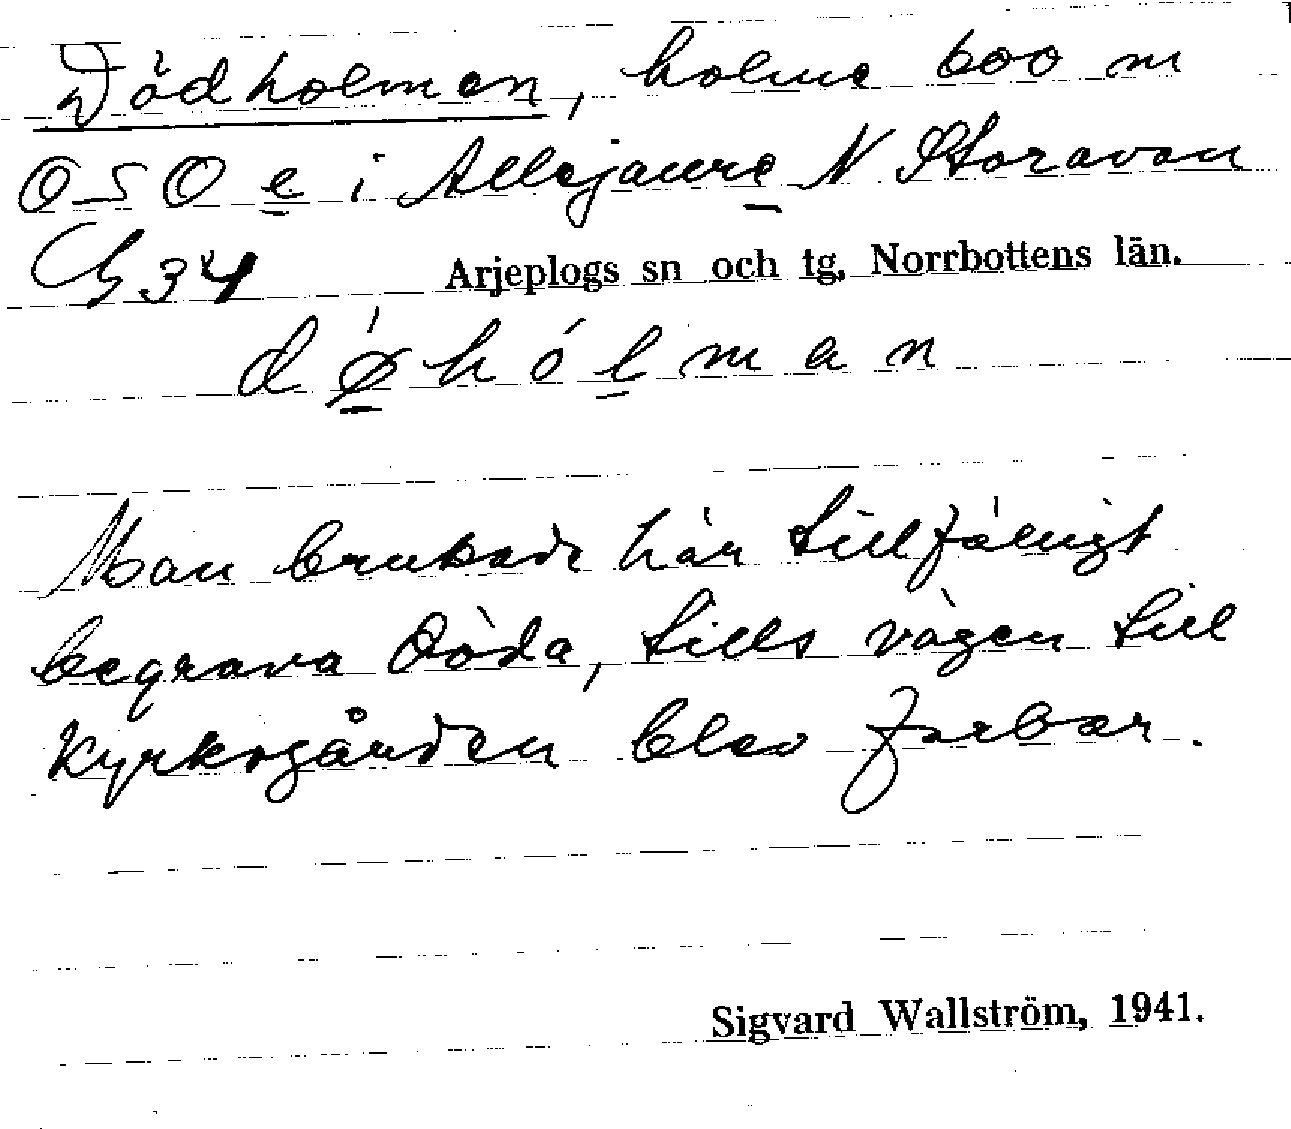 Dödholmen, holme 600 m
OSO e i Allejaure N Storavan
G 34 Arjeplogs sn och tg, Norrbottens län.
d ǿ h ó l m a n
Man brukade här tillfälligt
begrava döda, tills vägen till
Kyrkogården blev farbar.
Sigvard Wallström, 1941.